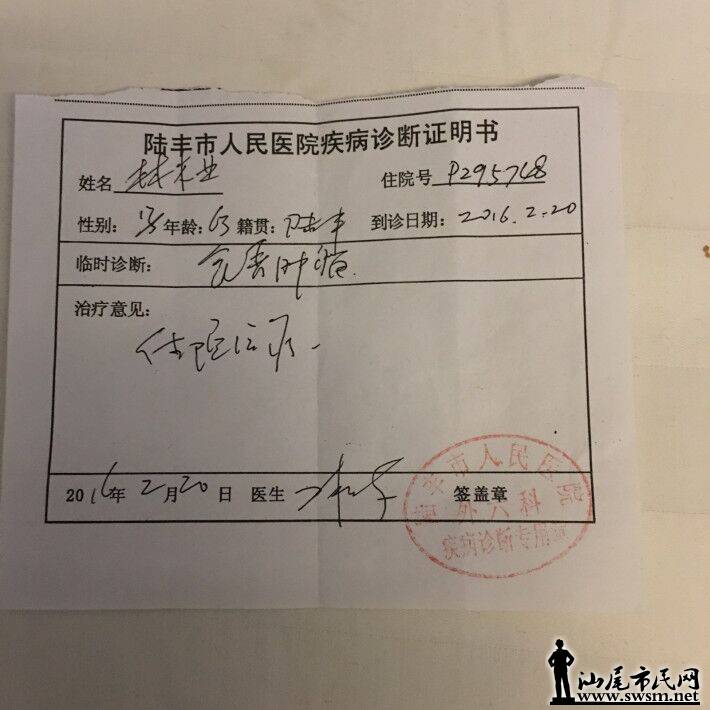 陆丰市人民医院疾病诊断证明书
姓名 林 业 住院号 P295768
性别: 男 年龄: 63 籍贯: 陆丰 到诊日期: 2016.2.20
临时诊断: 肿瘤
治疗意见:
住院治疗.
2016年2月20日 医生 签盖章
丰市人民医院
外六科
疾病诊断专用章
汕尾市民网
www.swsm.net